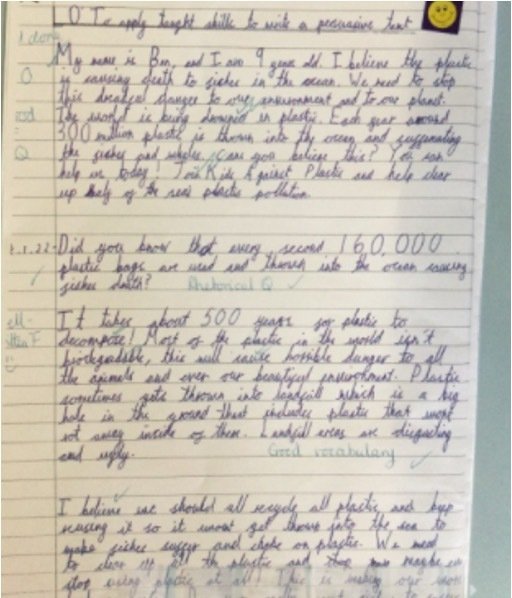 LO To apply taught skills to write a persuasive text
My name is Ben, and I am 9 year old. I believe the plastic
is causing death to fishes in the ocean. We need to stop
this dreadful danger to our environment and to our planet.
The world is being drowned in plastic. Each year around
300 million plastic is thrown into the ocean and suffocating
the fishes and whales. Can you believe this? You can
help us today! Join Kids Against Plastic and help clear
up half of the sea's plastic pollution.
Did you know that every second 160,000
plastic bags are used and thrown into the ocean causing
fishes death? Rhetorical Q
It takes about 500 years for plastic to
decompose! Most of the plastic in the world isn't
biodegradable, this will cause horrible danger to all
the animals and over our beautiful environment. Plastic
sometimes gets thrown into landfill which is a big
hole in the ground that includes plastic that wont
rot away inside of them. Landfill areas are disgusting
and ugly. Good vocabulary
I believe we should all recycle all plastic and keep
reusing it so it wont get thrown into the sea to
make fishes suffer and choke on plastic. We need
to clear up all the plastic and then maybe even
stop using plastic at all! This is making our